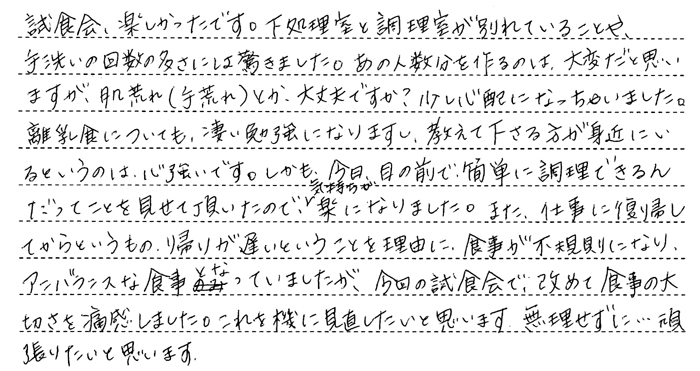 試食会、楽しかったです。下処理室と調理室が別れていることや、
手洗いの回数の多さには驚きました。あの人数分を作るのは、大変だと思い
ますが、肌荒れ(手荒れ)とか、大丈夫ですか?少し心配になっちゃいました。
離乳食についても、凄い勉強になりますし、教えて下さる方が身近にい
るというのは、心強いです。しかも、今日、目の前で、簡単に調理できるん
だってことを見せて頂いたので、気持ちが楽になりました。また、仕事に復帰し
てからというもの、帰りが遅いということを理由に、食事が不規則になり、
アンバランスな食事となっていましたが、今回の試食会で、改めて食事の大
切さを痛感しました。これを機に見直したいと思います。無理せずに…頑
張りたいと思います。